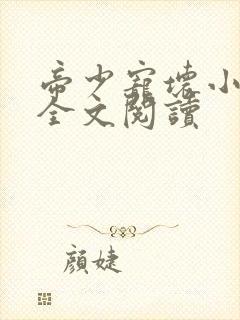 帝少寵壞小
全文閱讀
顏婕